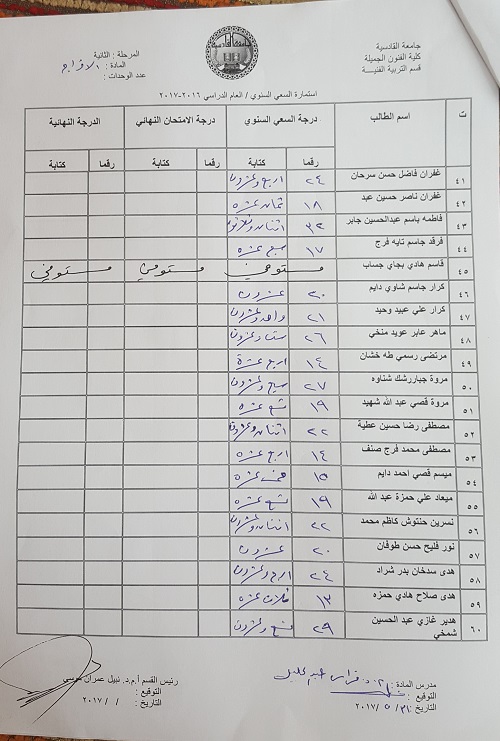 جامعة القادسية
كلية الفنون الجميلة
قسم التربية الفنية
المرحلة : الثانية
المادة : الاخراج
عدد الوحدات :
استمارة السعي السنوي / العام الدراسي ٢٠١٦-٢٠١٧
ت اسم الطالب درجة السعي السنوي درجة الامتحان النهائي الدرجة النهائية
رقما كتابة رقما كتابة رقما كتابة
٤١ غفران فاضل حسن سرحان ٢٤ اربع وعشرون
٤٢ غفران ناصر حسين عبد ١٨ ثمان عشرة
٤٣ فاطمه باسم عبدالحسين جابر ٣٢ اثنان وثلاثون
٤٤ فرقد جاسم تايه فرج ١٧ سبع عشرة
٤٥ قاسم هادي بجاي جساب مستوفي مستوفي مستوفي
٤٦ كرار جاسم شاوي دايم ٢٠ عشرون
٤٧ كرار علي عبيد وحيد ٢١ واحد وعشرون
٤٨ ماهر عابر عويد منخي ٢٦ ستة وعشرون
٤٩ مرتضى رسمي طه خشان ١٤ اربع عشرة
٥٠ مروة جباررشك شناوه ٢٧ سبع وعشرون
٥١ مروة قصي عبد الله شهيد ١٩ تسع عشرة
٥٢ مصطفى رضا حسين عطية ٢٢ اثنان وعشرون
٥٣ مصطفى محمد فرج صنف ١٤ اربع عشرة
٥٤ ميسم قصي احمد دايم ١٥ خمس عشرة
٥٥ ميعاد علي حمزة عبد الله ١٩ تسع عشرة
٥٦ نسرين حنتوش كاظم محمد ٢٢ اثنان وعشرون
٥٧ نور فليح حسن طوفان ٢٠ عشرون
٥٨ هدى سدخان بدر شراد ٢٤ اربع وعشرون
٥٩ هدى صلاح هادي حمزه ١٣ ثلاث عشرة
٦٠ هدير غازي عبد الحسين شمخي ٢٩ تسع وعشرون
مدرس المادة :
التوقيع :
التاريخ : ٣١/ ٥ /٢٠١٧
رئيس القسم أ.م.د. نبيل عمران موسى
التوقيع :
التاريخ : / /٢٠١٧